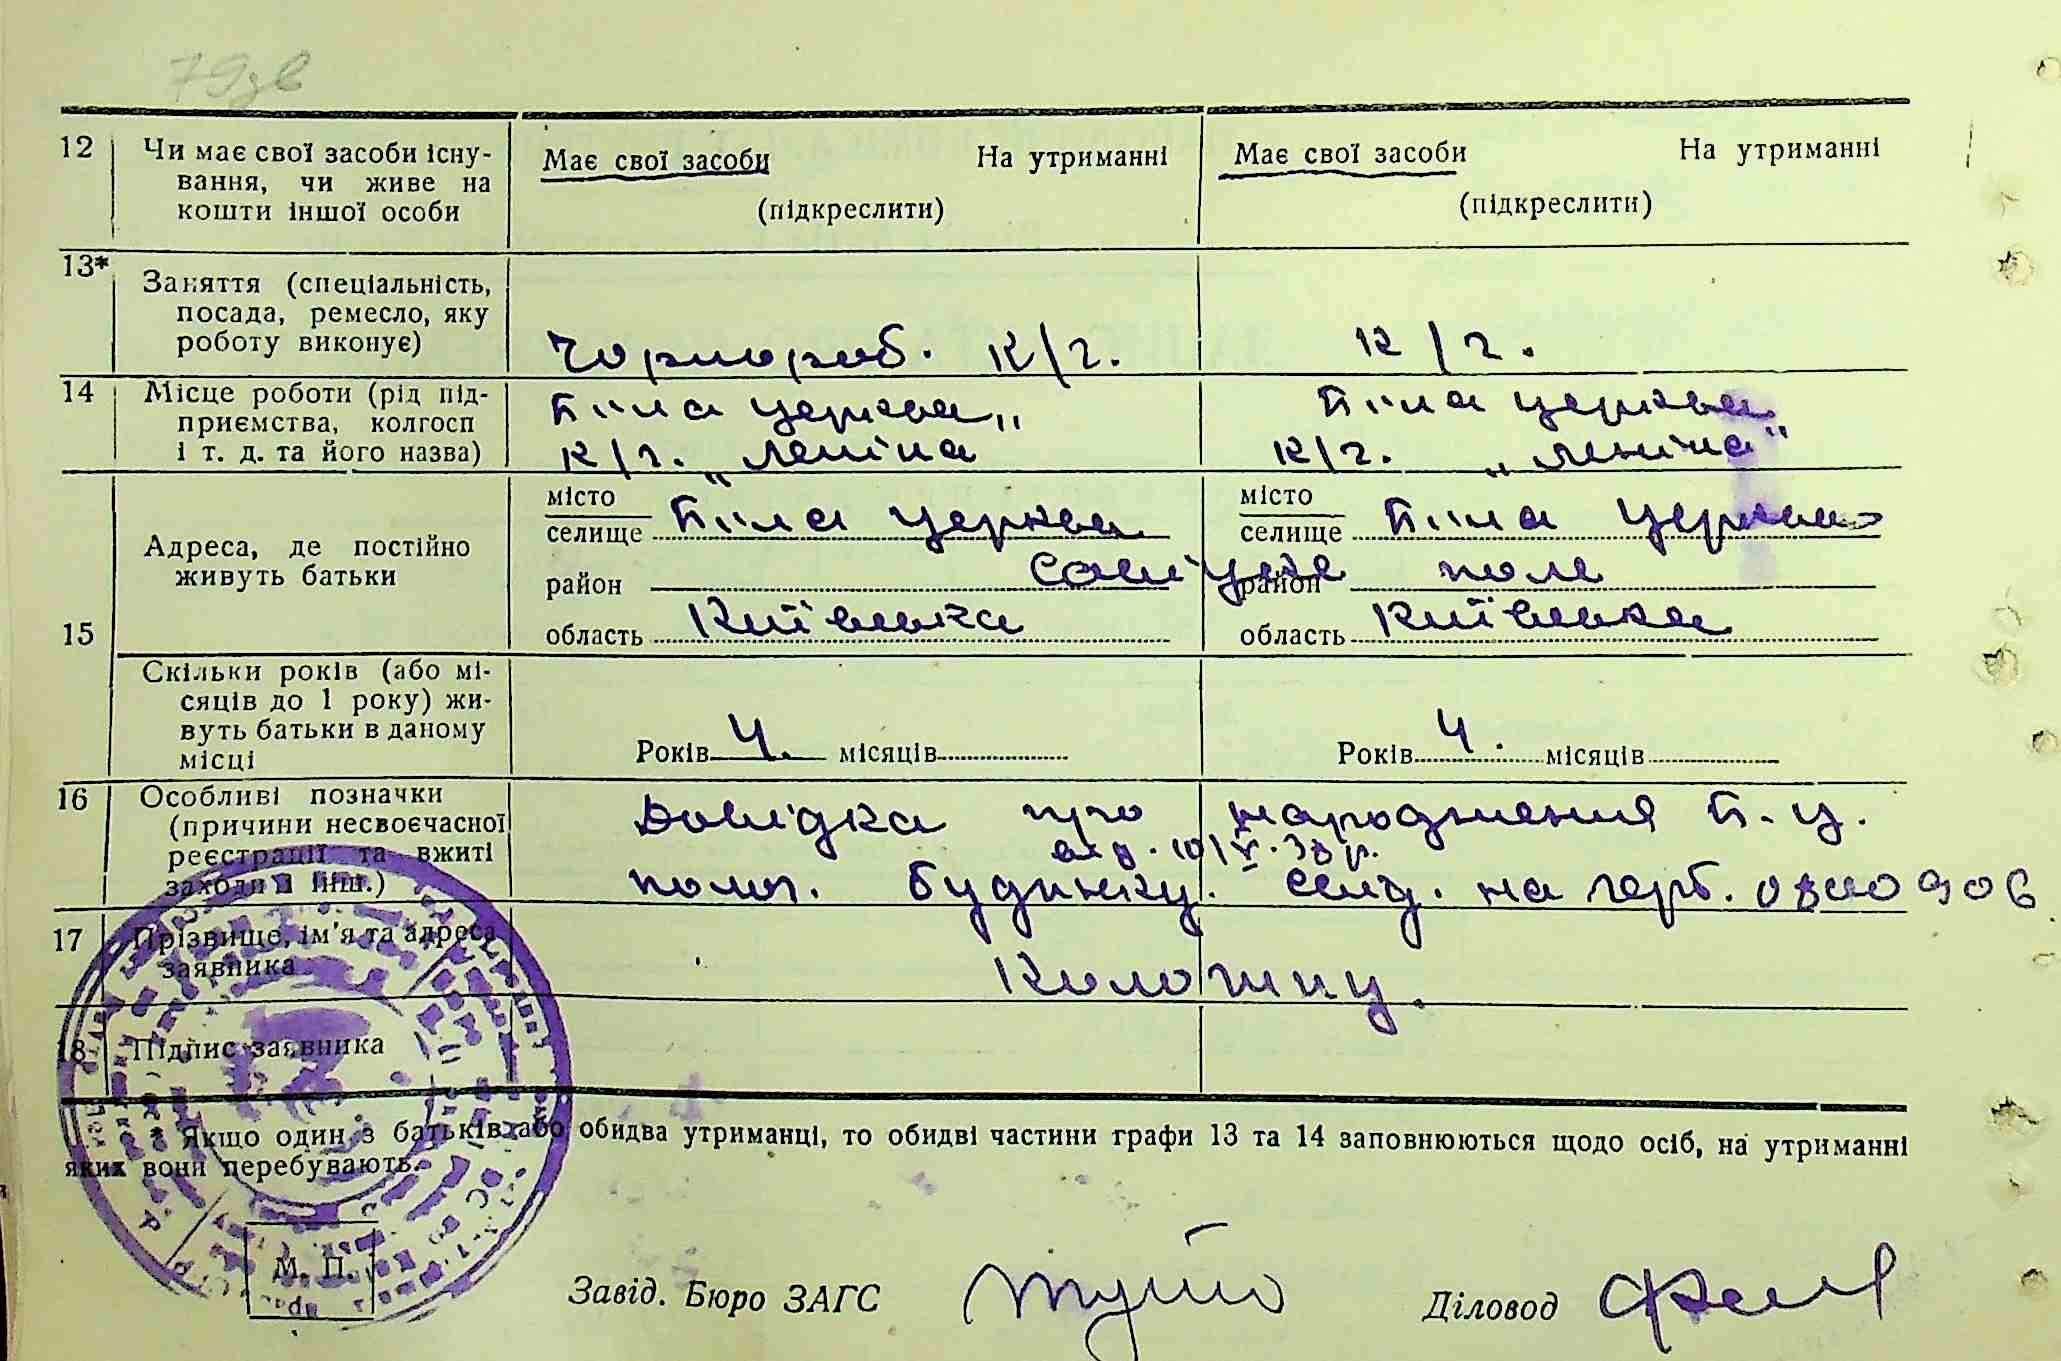 79зв
12 Чи має свої засоби існу- Має свої засоби На утриманні Має свої засоби На утриманні
вання, чи живе на
кошти іншої особи (підкреслити) (підкреслити)
13* Заняття (спеціальність,
посада, ремесло, яку
роботу виконує) Чорнороб. к/г. к/г.
14 Місце роботи (рід під- Біла церква Біла церква
приємства, колгосп
і т. д. та його назва) к/г. „Леніна" к/г. „Леніна"
15 Адреса, де постійно живуть батьки
місто місто
селище Біла церква селище Біла церква
район район поле
область Київська область Київська
Скільки років (або мі-
сяців до 1 року) жи-
вуть батьки в даному
місці Років 4. місяців Років 4. місяців
16 Особливі позначки Довідка про народження Б.ц.
(причини несвоєчасної
реєстрації та вжиті від. 10/V.38 р.
заходи й інш.) пол. будинку. свід. на герб. 0800906
17 Прізвище, ім'я та адреса
заявника
18 Підпис заявника
* Якщо один з батьків або обидва утриманці, то обидві частини графи 13 та 14 заповнюються щодо осіб, на утриманні
яких вони перебувають.
М. П.
Завід. Бюро ЗАГС Діловод